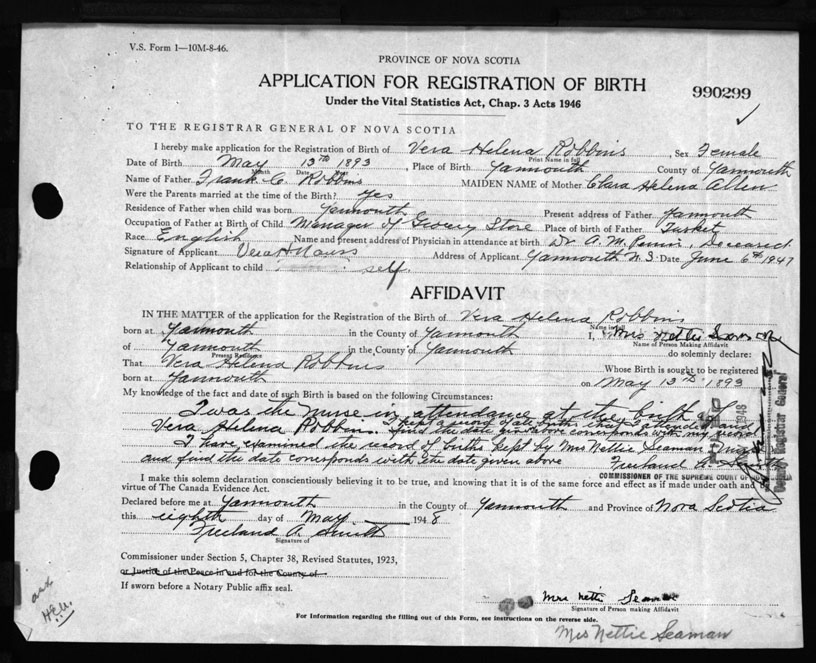 V.S. Form 1—10M-8-46.
PROVINCE OF NOVA SCOTIA
APPLICATION FOR REGISTRATION OF BIRTH
990299
Under the Vital Statistics Act, Chap. 3 Acts 1946
TO THE REGISTRAR GENERAL OF NOVA SCOTIA
I hereby make application for the Registration of Birth of Vera Helena Robbins, Sex Female
Print Name in full
Date of Birth May 13th 1893, Place of Birth Yarmouth County of Yarmouth
Month Date Year
Name of Father Frank C. Robbins MAIDEN NAME of Mother Clara Helena Allen
Were the Parents married at the time of Birth? yes
Residence of Father when child was born Yarmouth Present address of Father Yarmouth
Occupation of Father at Birth of Child Manager of Grocery Store Place of birth of Father Tusket
Race English Name and present address of Physician in attendance at birth Dr. A. M. Perrin, Deceased
Signature of Applicant Vera H Address of Applicant Yarmouth N.S. Date June 6th 1947
Relationship of Applicant to child self
AFFIDAVIT
IN THE MATTER of the application for the Registration of the Birth of Vera Helena Robbins
Name in full
born at Yarmouth in the County of Yarmouth I, Mrs Nettie Seaman
Name of Person Making Affidavit
of Yarmouth in the County of Yarmouth do solemnly declare:
Present Residence
That Vera Helena Robbins Whose Birth is sought to be registered
born at Yarmouth on May 13th 1893
My knowledge of the fact and date of such Birth is based on the following Circumstances:
I was the nurse in attendance at the birth of
Vera Helena Robbins. I kept a record of all births that I attended and
find the date given above corresponds with my record
I have examined the record of births kept by Mrs Nettie Seaman Nurse
and find the date corresponds with the date given above Freeland A. Smith
COMMISSIONER OF THE SUPREME COURT OF
1948
Deputy Registrar General
I make this solemn declaration conscientiously believing it to be true, and knowing that it is of the same force and effect as if made under oath and by
virtue of The Canada Evidence Act.
Declared before me at Yarmouth in the County of Yarmouth and Province of Nova Scotia
this eighth day of May 1948
Freeland A. Smith
Signature of
Commissioner under Section 5, Chapter 38, Revised Statutes, 1923,
or Justice of the Peace in and for the County of
If sworn before a Notary Public affix seal.
Mrs Nettie Seaman
Signature of Person making Affidavit
For Information regarding the filling out of this Form, see instructions on the reverse side.
Mrs Nettie Seaman